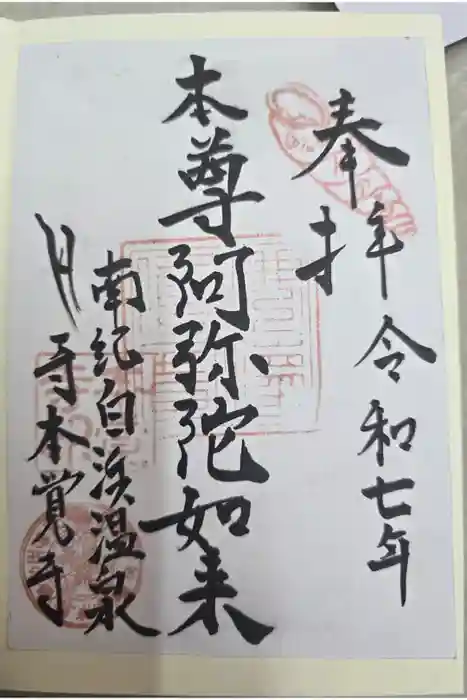 奉拝 令和七年
本尊阿弥陀如来
南紀白浜温泉
寺本覚寺